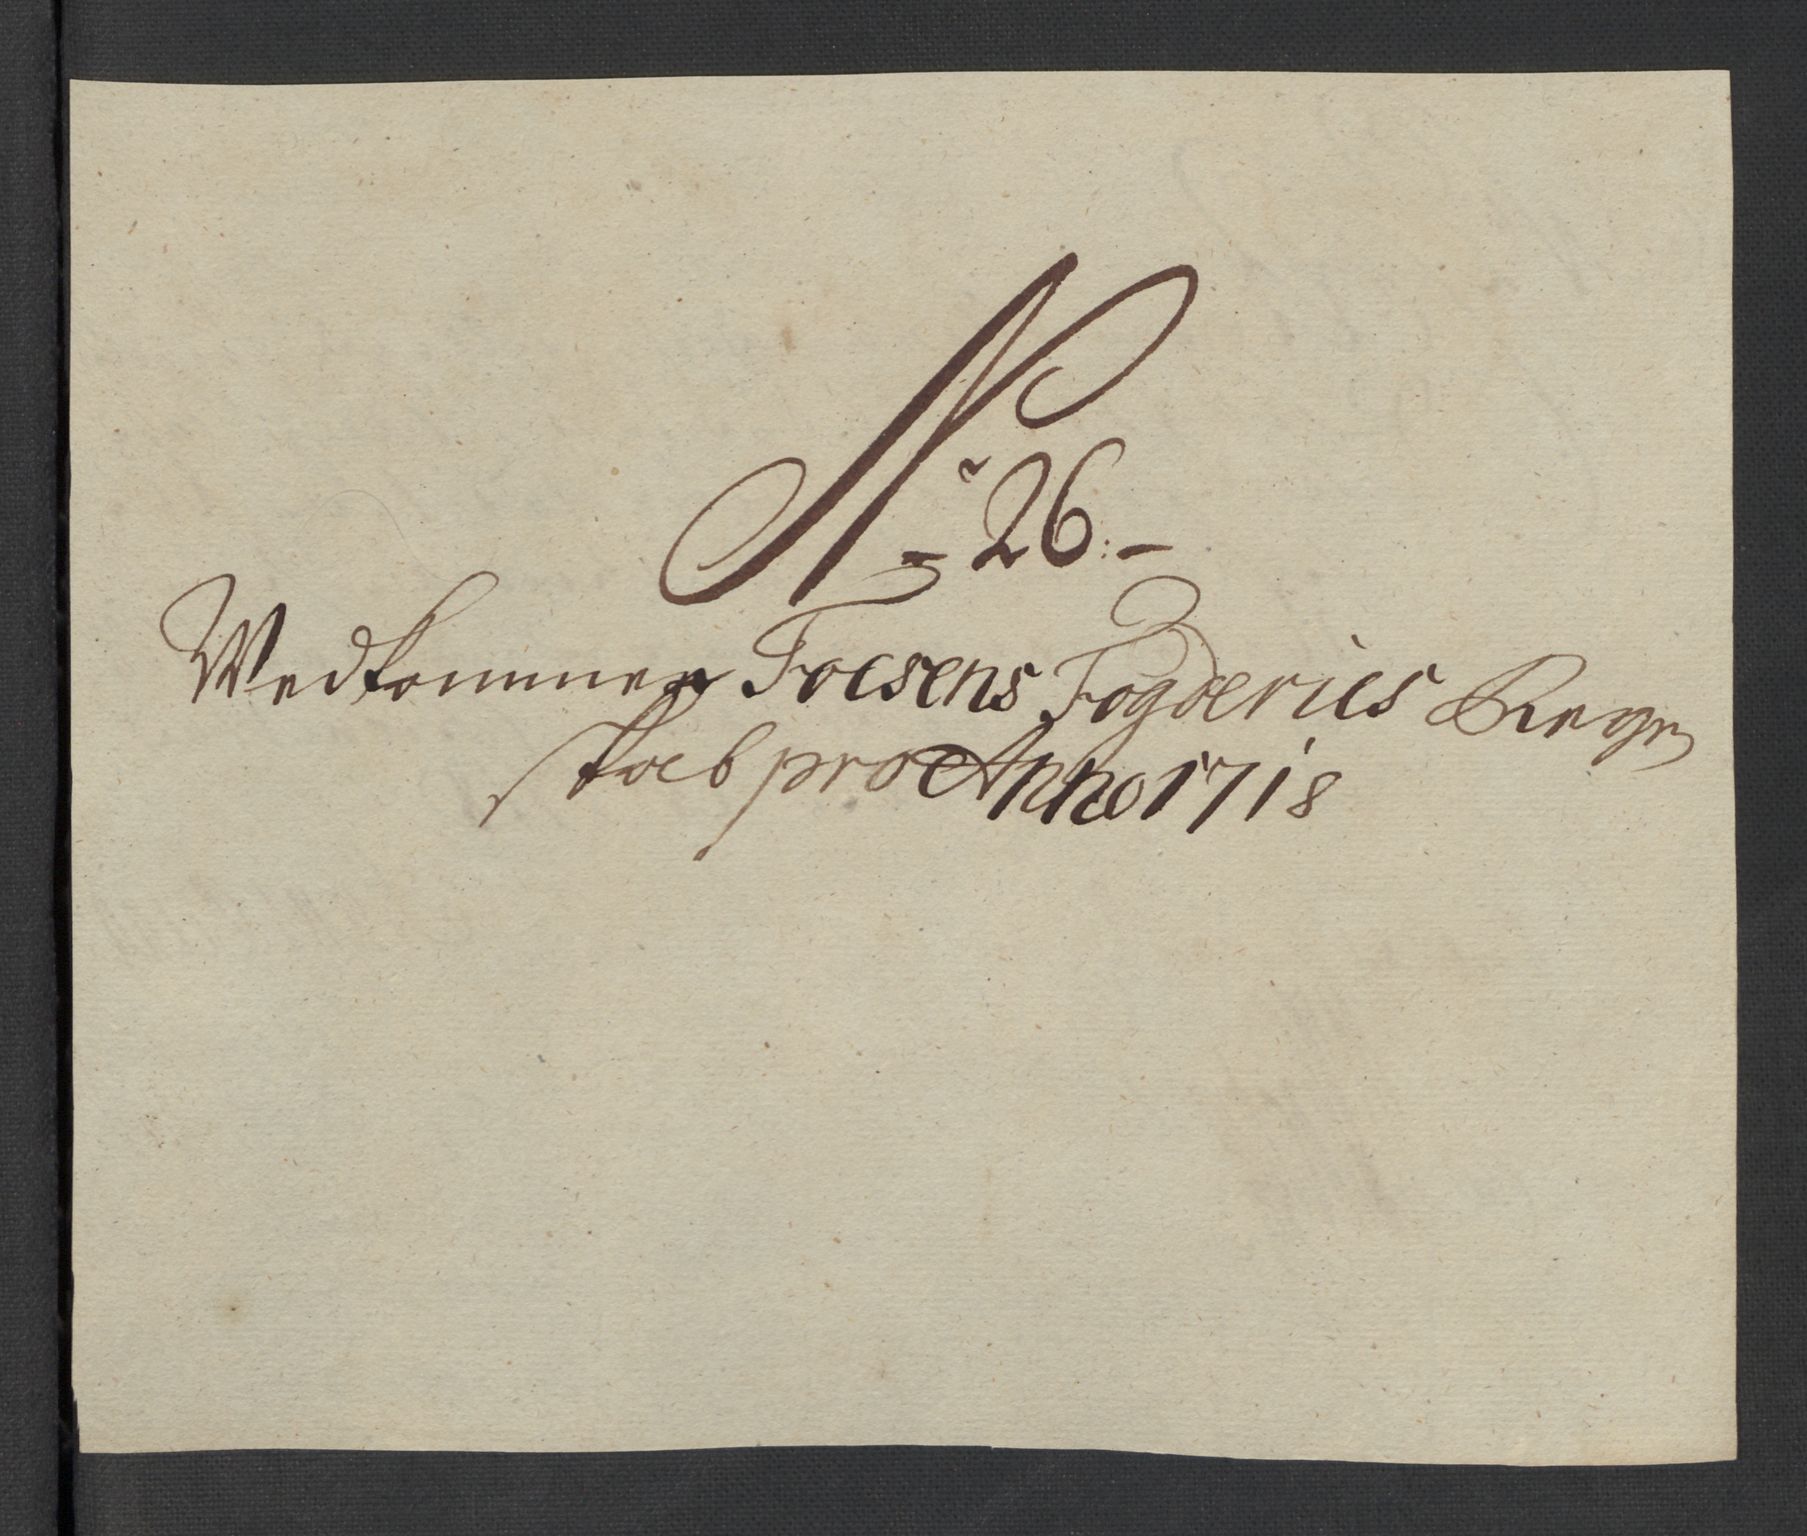 No 26:-
Wedkommer Foesens Fogderies Regn
skab pro Anno 1718